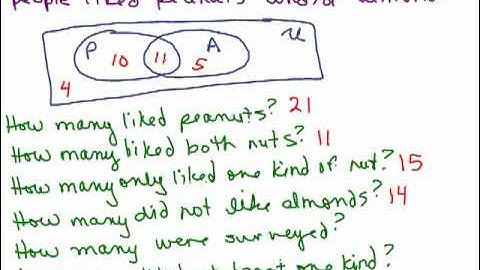 people liked peanuts and/or
P 10 11 A 5 U
4
How many liked peanuts? 21
How many liked both nuts? 11
How many only liked one kind of nut? 15
How many did not like almonds? 14
How many were surveyed?
least one kind?